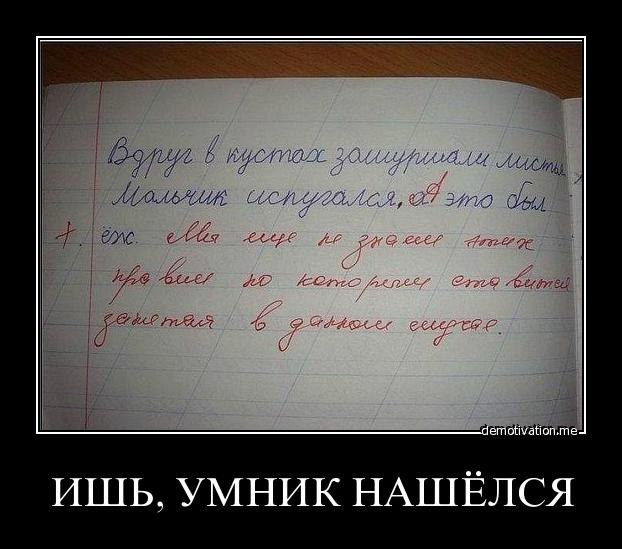 Вдруг в кустах зашуршали листья
Мальчик испугался, а А это был
ёж. Мы ещё не знаем этих
правил по которым ставится
запятая в данном случае.
demotivation.me
ИШЬ, УМНИК НАШЁЛСЯ